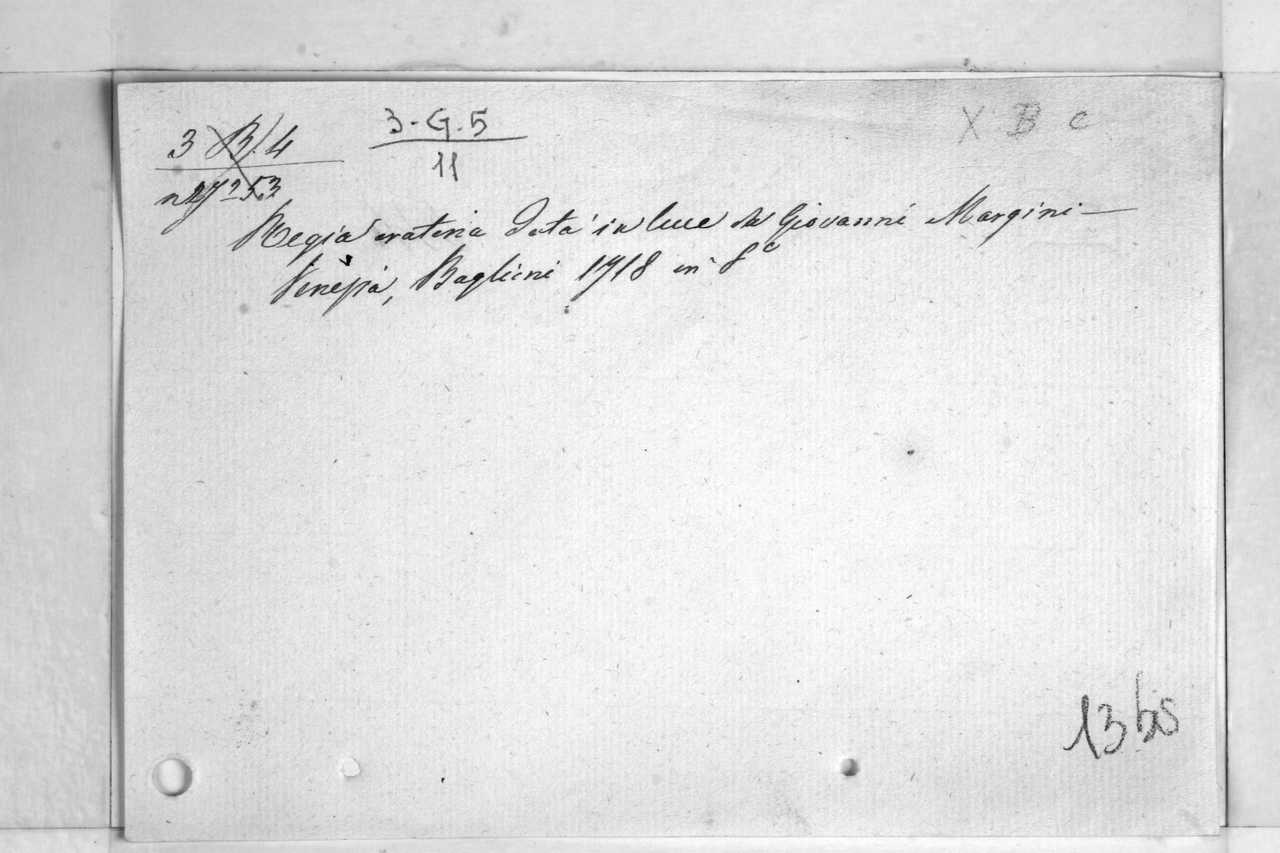 3 B. 4
3-G.5
X B c
11
Regia oratoria data in luce da Giovanni Margini—
Venezia, Baglioni 1718 in 8°
13 bis